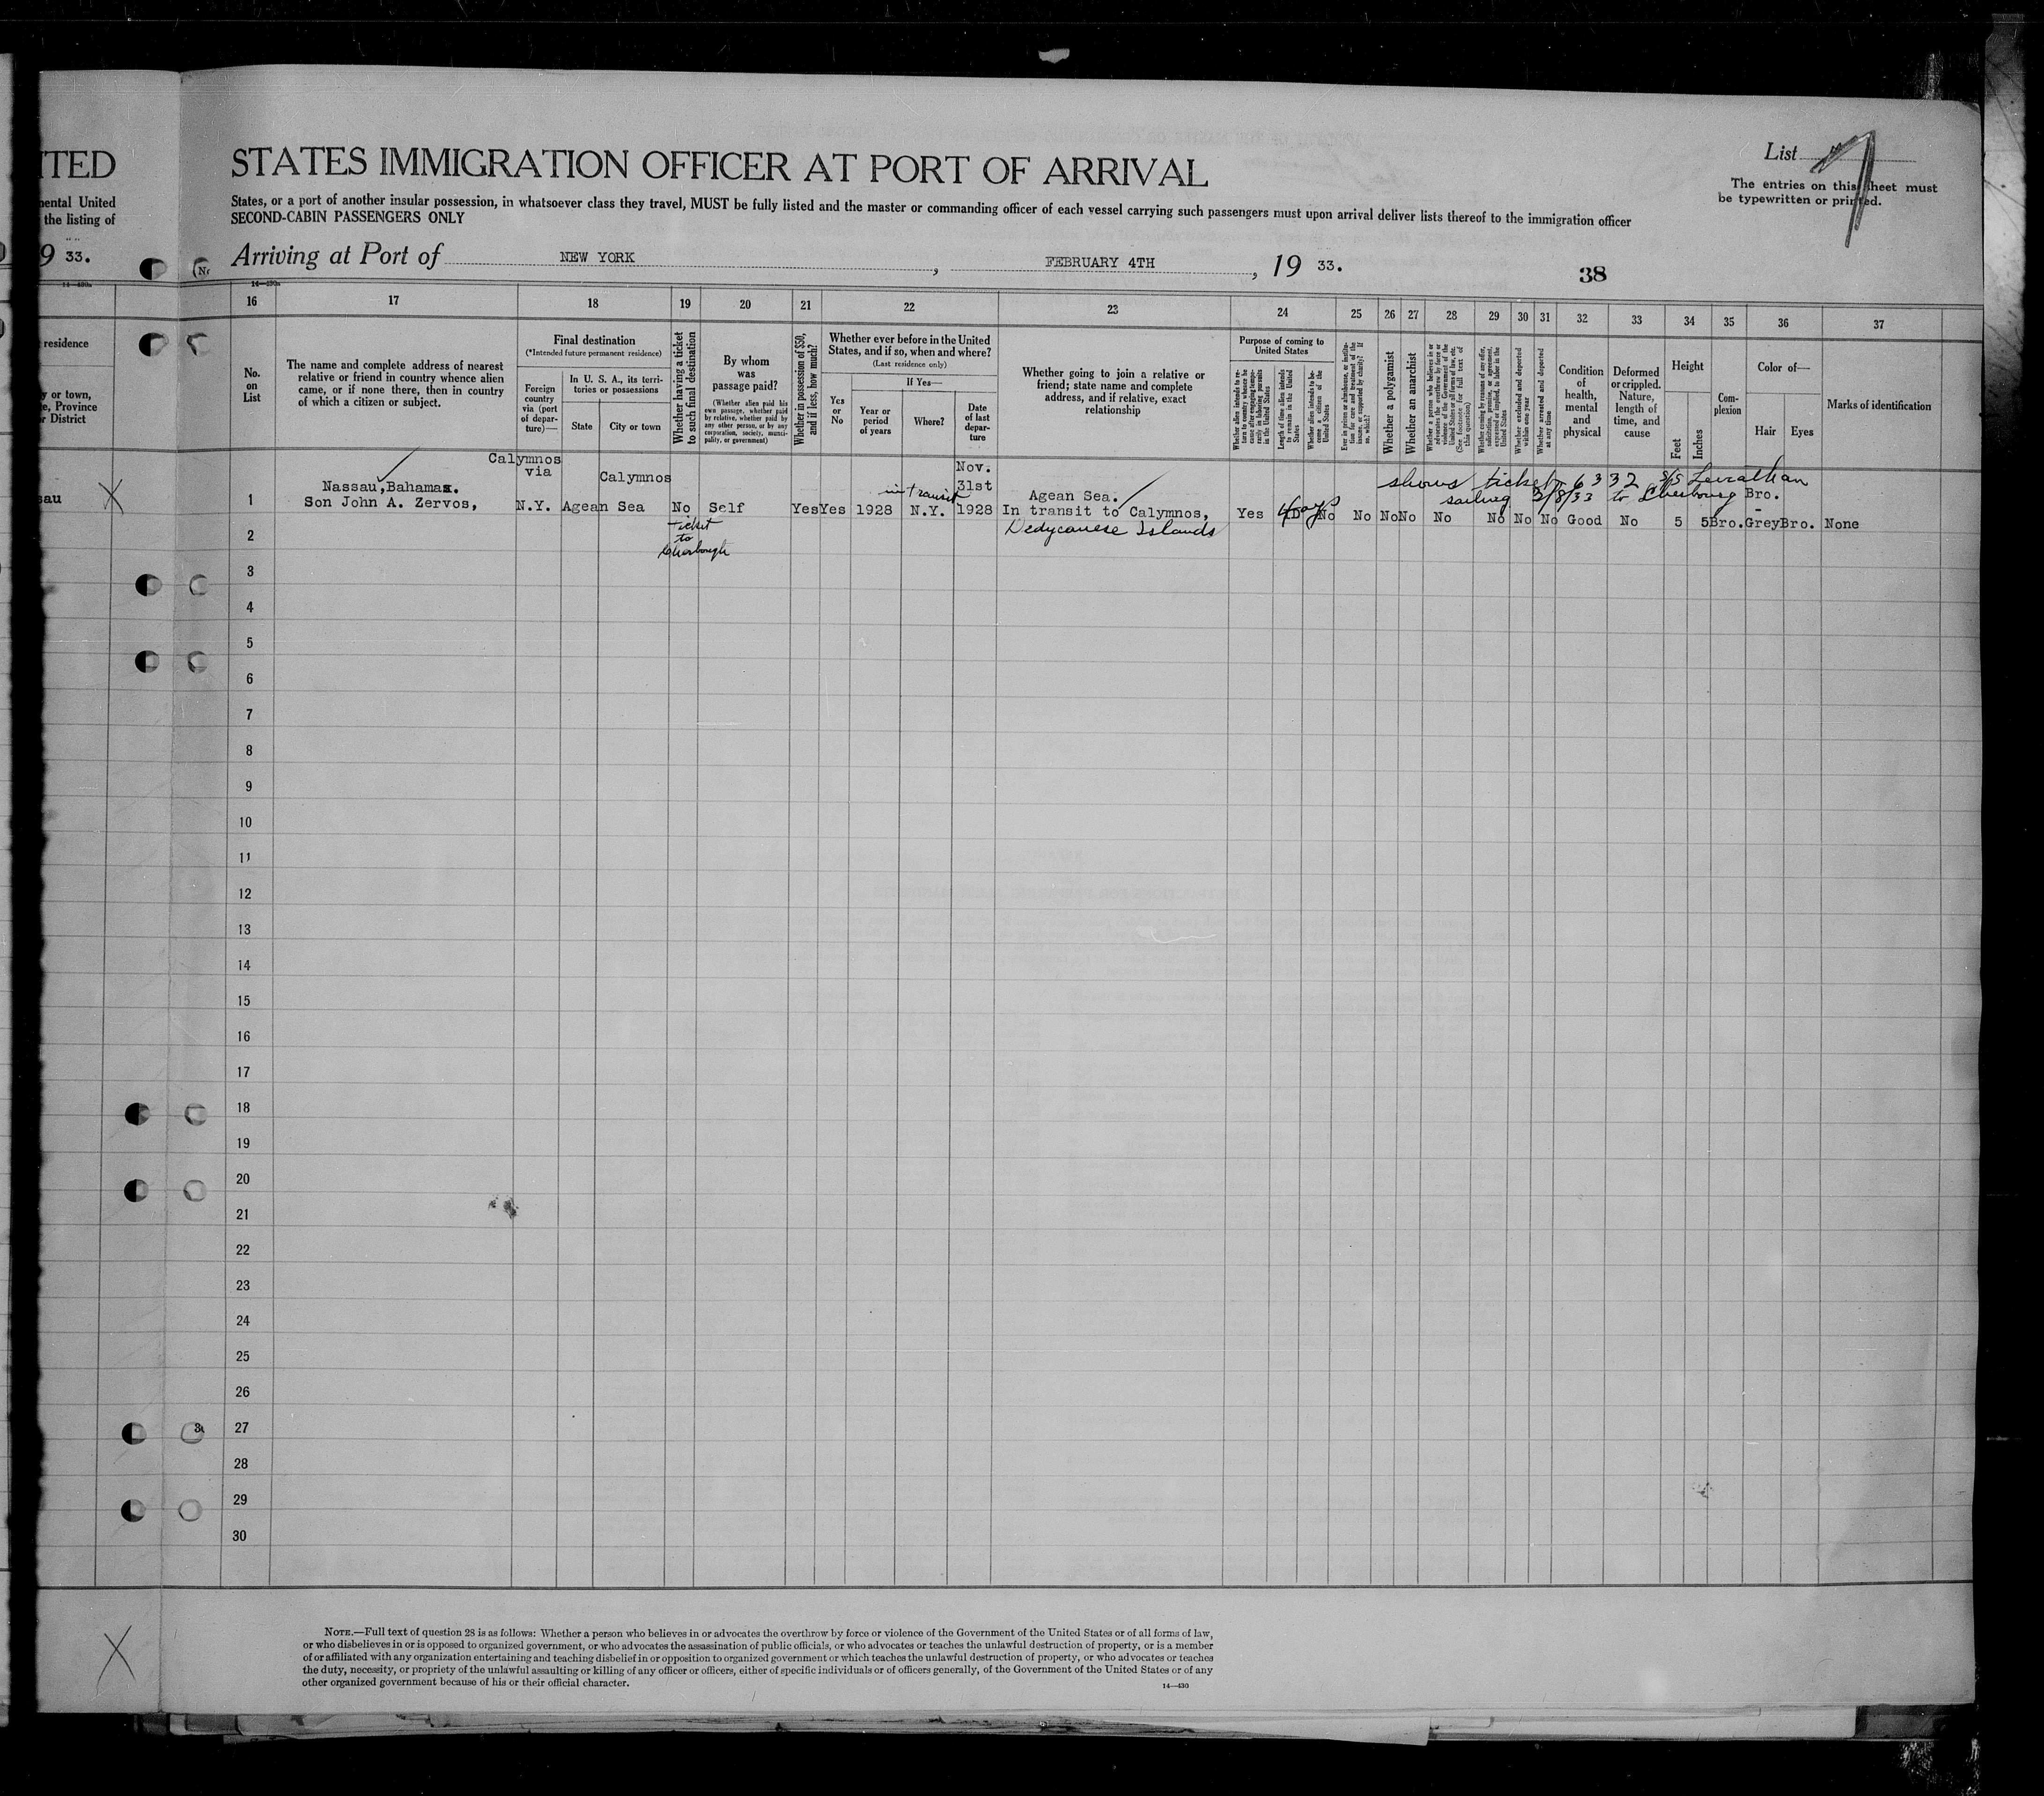 ITED
nental United
the listing of
9 33.
residence
y or town,
e, Province
or District
sau
STATES IMMIGRATION OFFICER AT PORT OF ARRIVAL
List
The entries on this sheet must
be typewritten or printed.
States, or a port of another insular possession, in whatsoever class they travel, MUST be fully listed and the master or commanding officer of each vessel carrying such passengers must upon arrival deliver lists thereof to the immigration officer
SECOND-CABIN PASSENGERS ONLY
Arriving at Port of NEW YORK, FEBRUARY 4TH, 19 33.
38
14—430a
16 17 18 19 20 21 22 23 24 25 26 27 28 29 30 31 32 33 34 35 36 37
No. on List
The name and complete address of nearest
relative or friend in country whence alien
came, or if none there, then in country
of which a citizen or subject.
Final destination
(*Intended future permanent residence)
Foreign country via (port of departure)—
In U. S. A., its territories or possessions
State
City or town
Whether having a ticket to such final destination
By whom was passage paid?
(Whether alien paid his own passage, whether paid by relative, whether paid by any other person, or by any corporation, society, municipality, or government)
Whether in possession of $50, and if less, how much?
Whether ever before in the United
States, and if so, when and where?
(Last residence only)
Yes or No
If Yes—
Year or period of years
Where?
Date of last departure
Whether going to join a relative or
friend; state name and complete
address, and if relative, exact
relationship
Purpose of coming to United States
Whether alien intends to return to country whence he came after engaging temporarily in laboring pursuits in the United States
Length of time alien intends to remain in the United States
Whether alien intends to become a citizen of the United States
Ever in prison or almshouse, or institution for care and treatment of the insane, or supported by charity? If so, which?
Whether a polygamist
Whether an anarchist
Whether a person who believes in or advocates the overthrow by force or violence of the Government of the United States or all forms of law, etc. (See footnote for full text of this question)
Whether coming by reason of any offer, solicitation, promise, or agreement, expressed or implied, to labor in the United States
Whether excluded and deported within one year
Whether arrested and deported at any time
Condition of health, mental and physical
Deformed or crippled. Nature, length of time, and cause
Height
Feet
Inches
Complexion
Color of—
Hair
Eyes
Marks of identification
1
Nassau, Bahamas.
Son John A. Zervos,
Calymnos
via
N.Y.
Calymnos
Agean Sea
No
ticket
to
Cherbough
Self
Yes Yes 1928
in transit
N.Y.
Nov.
31st
1928
Agean Sea.
In transit to Calymnos,
Dedycanese Islands
Yes
4 days
No
shows ticket 6332 S/S Leviathan
sailing 2/8/33 to Cherbourg
No No No No No No No Good No 5 5 Bro. Grey Bro. None
Bro.
2
3
4
5
6
7
8
9
10
11
12
13
14
15
16
17
18
19
20
21
22
23
24
25
26
27
28
29
30
NOTE.—Full text of question 28 is as follows: Whether a person who believes in or advocates the overthrow by force or violence of the Government of the United States or of all forms of law,
or who disbelieves in or is opposed to organized government, or who advocates the assassination of public officials, or who advocates or teaches the unlawful destruction of property, or is a member
of or affiliated with any organization entertaining and teaching disbelief in or opposition to organized government or which teaches the unlawful destruction of property, or who advocates or teaches
the duty, necessity, or propriety of the unlawful assaulting or killing of any officer or officers, either of specific individuals or of officers generally, of the Government of the United States or of any
other organized government because of his or their official character.
14—430